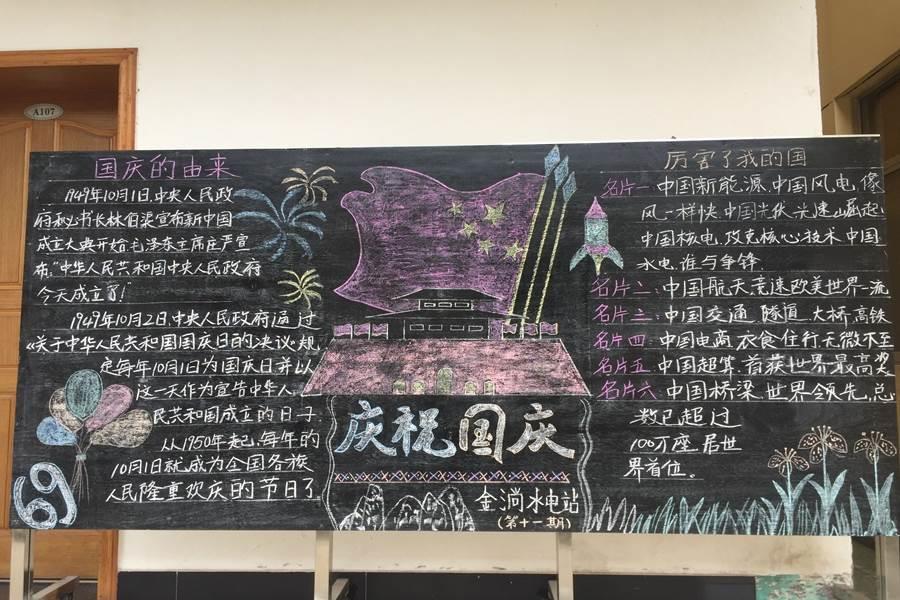 A107
国庆的由来
1949年10月1日,中央人民政
府秘书长林伯渠宣布新中国
成立大典开始,毛泽东主席庄严宣
布:"中华人民共和国中央人民政府
今天成立了!"
1949年10月2日,中央人民政府通过
《关于中华人民共和国国庆日的决议》,规
定每年10月1日为国庆日并以
这一天作为宣告中华人
民共和国成立的日子.
从1950年起,每年的
10月1日就成为全国各族
人民隆重欢庆的节日了.
69
庆祝国庆
金淌水电站
(第十一期)
厉害了我的国
名片一:中国新能源.中国风电,像
风一样快.中国光伏.光速崛起.
中国核电.攻克核心技术.中国
水电.谁与争锋
名片二:中国航天.竞速欧美世界一流
名片三:中国交通.隧道.大桥.高铁
名片四:中国电商.衣食住行无微不至
名片五:中国超算.首获世界最高奖
名片六:中国桥梁.世界领先,总
数已超过
100万座.居世
界首位.